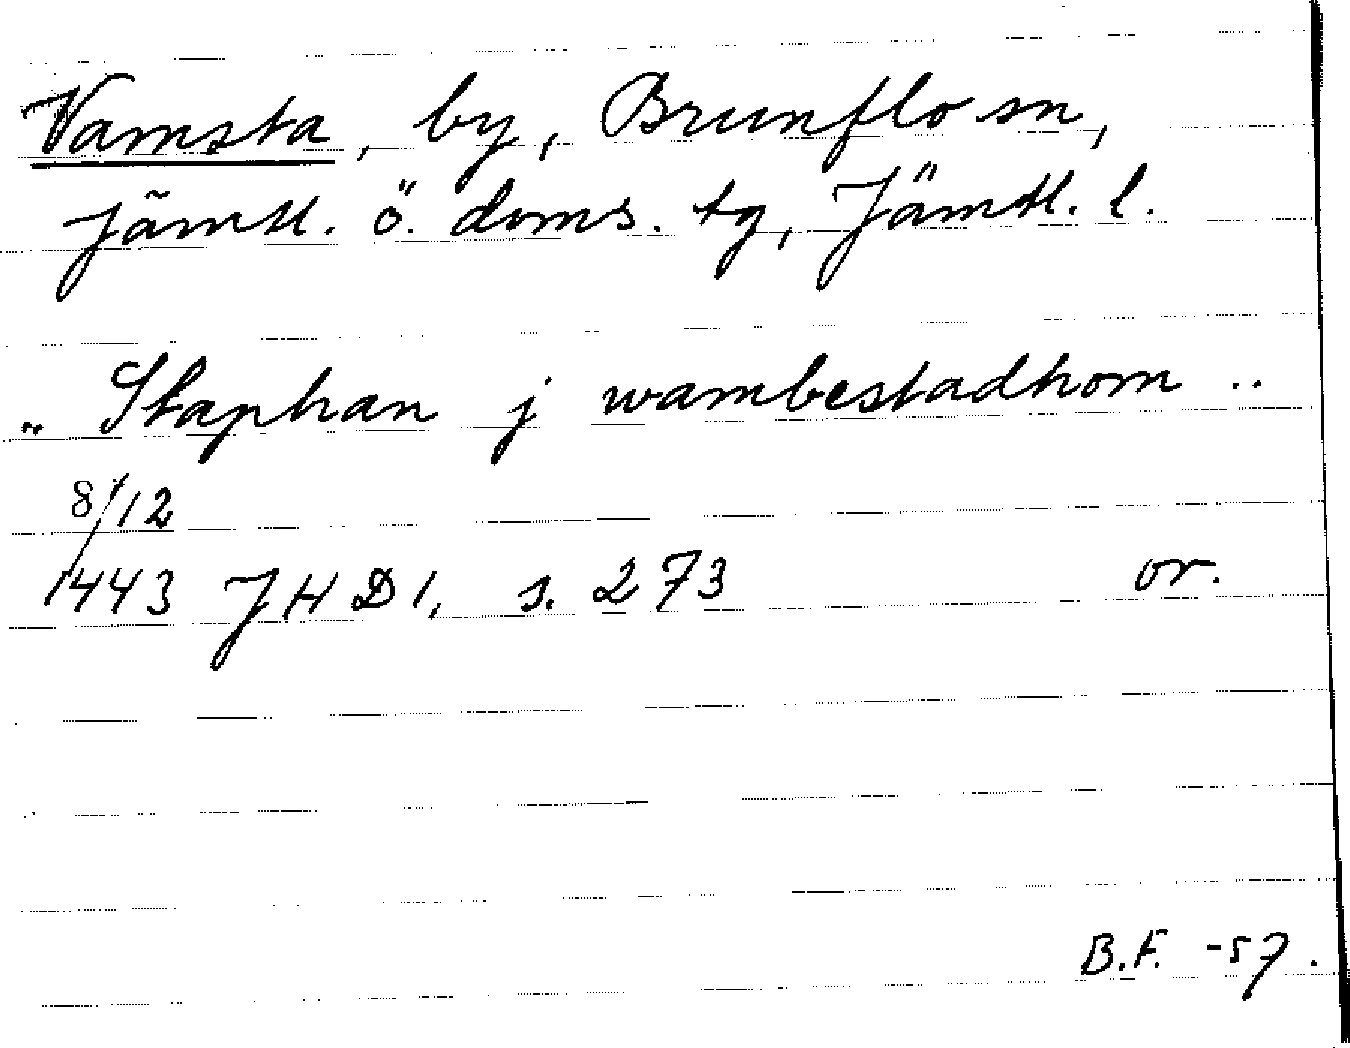 Vamsta, by, Brunflo sn,
jämtl. ö. doms. tg, Jämtl. l.
.. Staphan j wambestadhom ..
8/12
1443 JHD 1, s. 273 or.
B.F. -57.